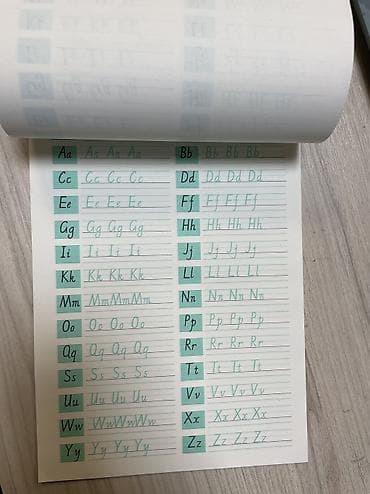 Aa Aa Aa Aa Bb Bb Bb Bb
Cc Cc Cc Cc Dd Dd Dd Dd
Ee Ee Ee Ee Ff Ff Ff Ff
Gg Gg Gg Gg Hh Hh Hh Hh
Ii Ii Ii Ii Jj Jj Jj Jj
Kk Kk Kk Kk Ll Ll Ll Ll
Mm Mm Mm Mm Nn Nn Nn Nn
Oo Oo Oo Oo Pp Pp Pp Pp
Qq Qq Qq Qq Rr Rr Rr Rr
Ss Ss Ss Ss Tt Tt Tt Tt
Uu Uu Uu Uu Vv Vv Vv Vv
Ww Ww Ww Ww Xx Xx Xx Xx
Yy Yy Yy Yy Zz Zz Zz Zz